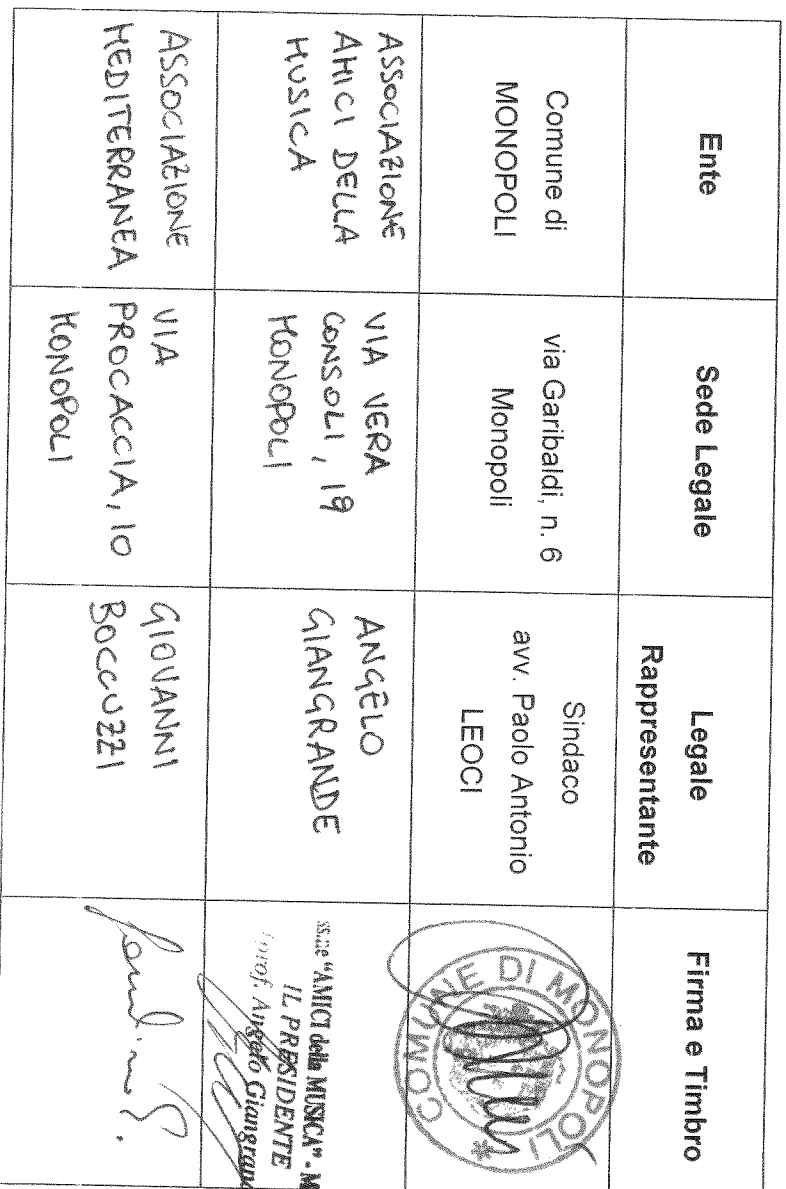 Ente
Sede Legale
Legale
Rappresentante
Firma e Timbro
Comune di
MONOPOLI
via Garibaldi, n. 6
Monopoli
Sindaco
avv. Paolo Antonio
LEOCI
COMUNE DI MONOPOLI *
ASSOCIAZIONE
AMICI DELLA
MUSICA
VIA VERA
CONSOLI, 19
MONOPOLI
ANGELO
GIANGRANDE
"AMICI della MUSICA" - M
IL PRESIDENTE
prof. Angelo Giangrand
ASSOCIAZIONE
MEDITERRANEA
VIA
PROCACCIA, 10
MONOPOLI
GIOVANNI
BOCCUZZI